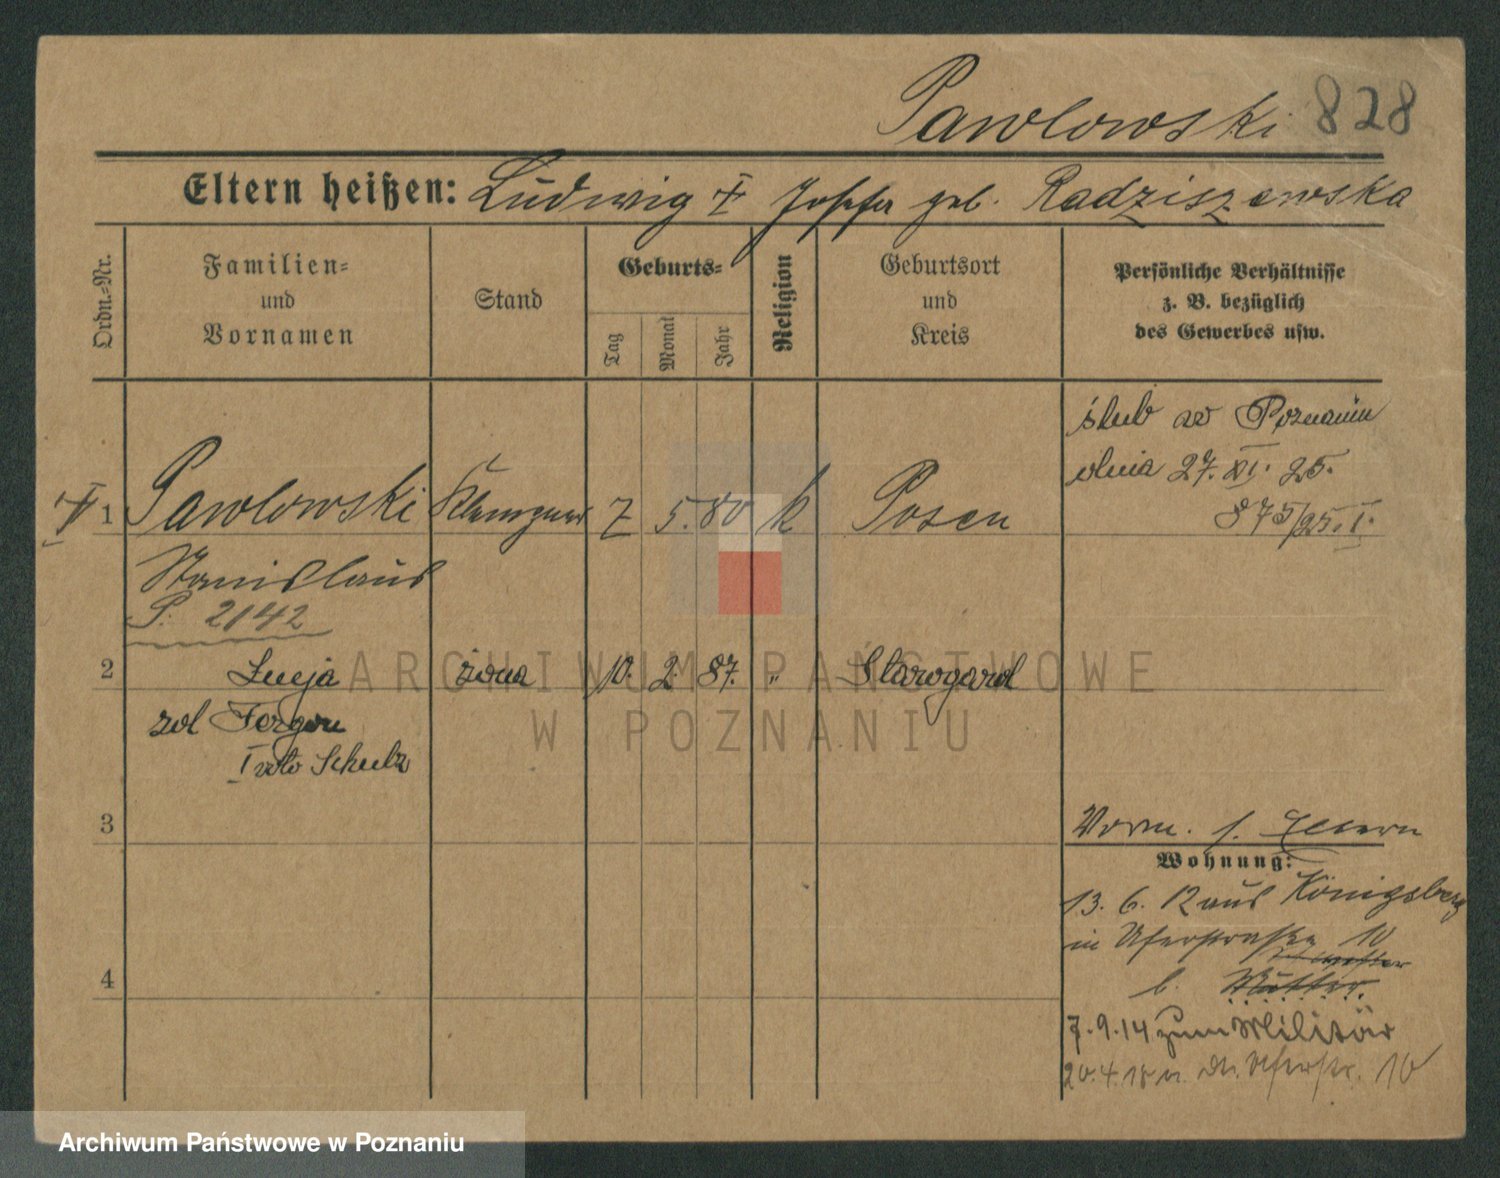 Pawlowski 828
Eltern heißen: Ludwig + Josefa geb. Radziszewska
Ordn.=Nr.
Familien=
und
Vornamen
Stand
Geburts=
Tag
Monat
Jahr
Religion
Geburtsort
und
Kreis
Persönliche Verhältnisse
z. B. bezüglich
des Gewerbes usw.
ślub w Poznaniu
dnia 27. XI. 25.
875/25. I.
1 Pawlowski 7 5. 80 k Posen
Stanislaus
P. 2142
2 Lucja żona 10. 2. 87. " Starogard
zd
I voto Schulz
3
Vorm. s. Eltern
Wohnung:
13. 6. 12 aus Königsberg
in Uferstraße 10
4
b. Mutter.
7. 9. 14 zum Militär
20. 4. 18 Uferstr. 10
ARCHIWUM PAŃSTWOWE
W POZNANIU
Archiwum Państwowe w Poznaniu